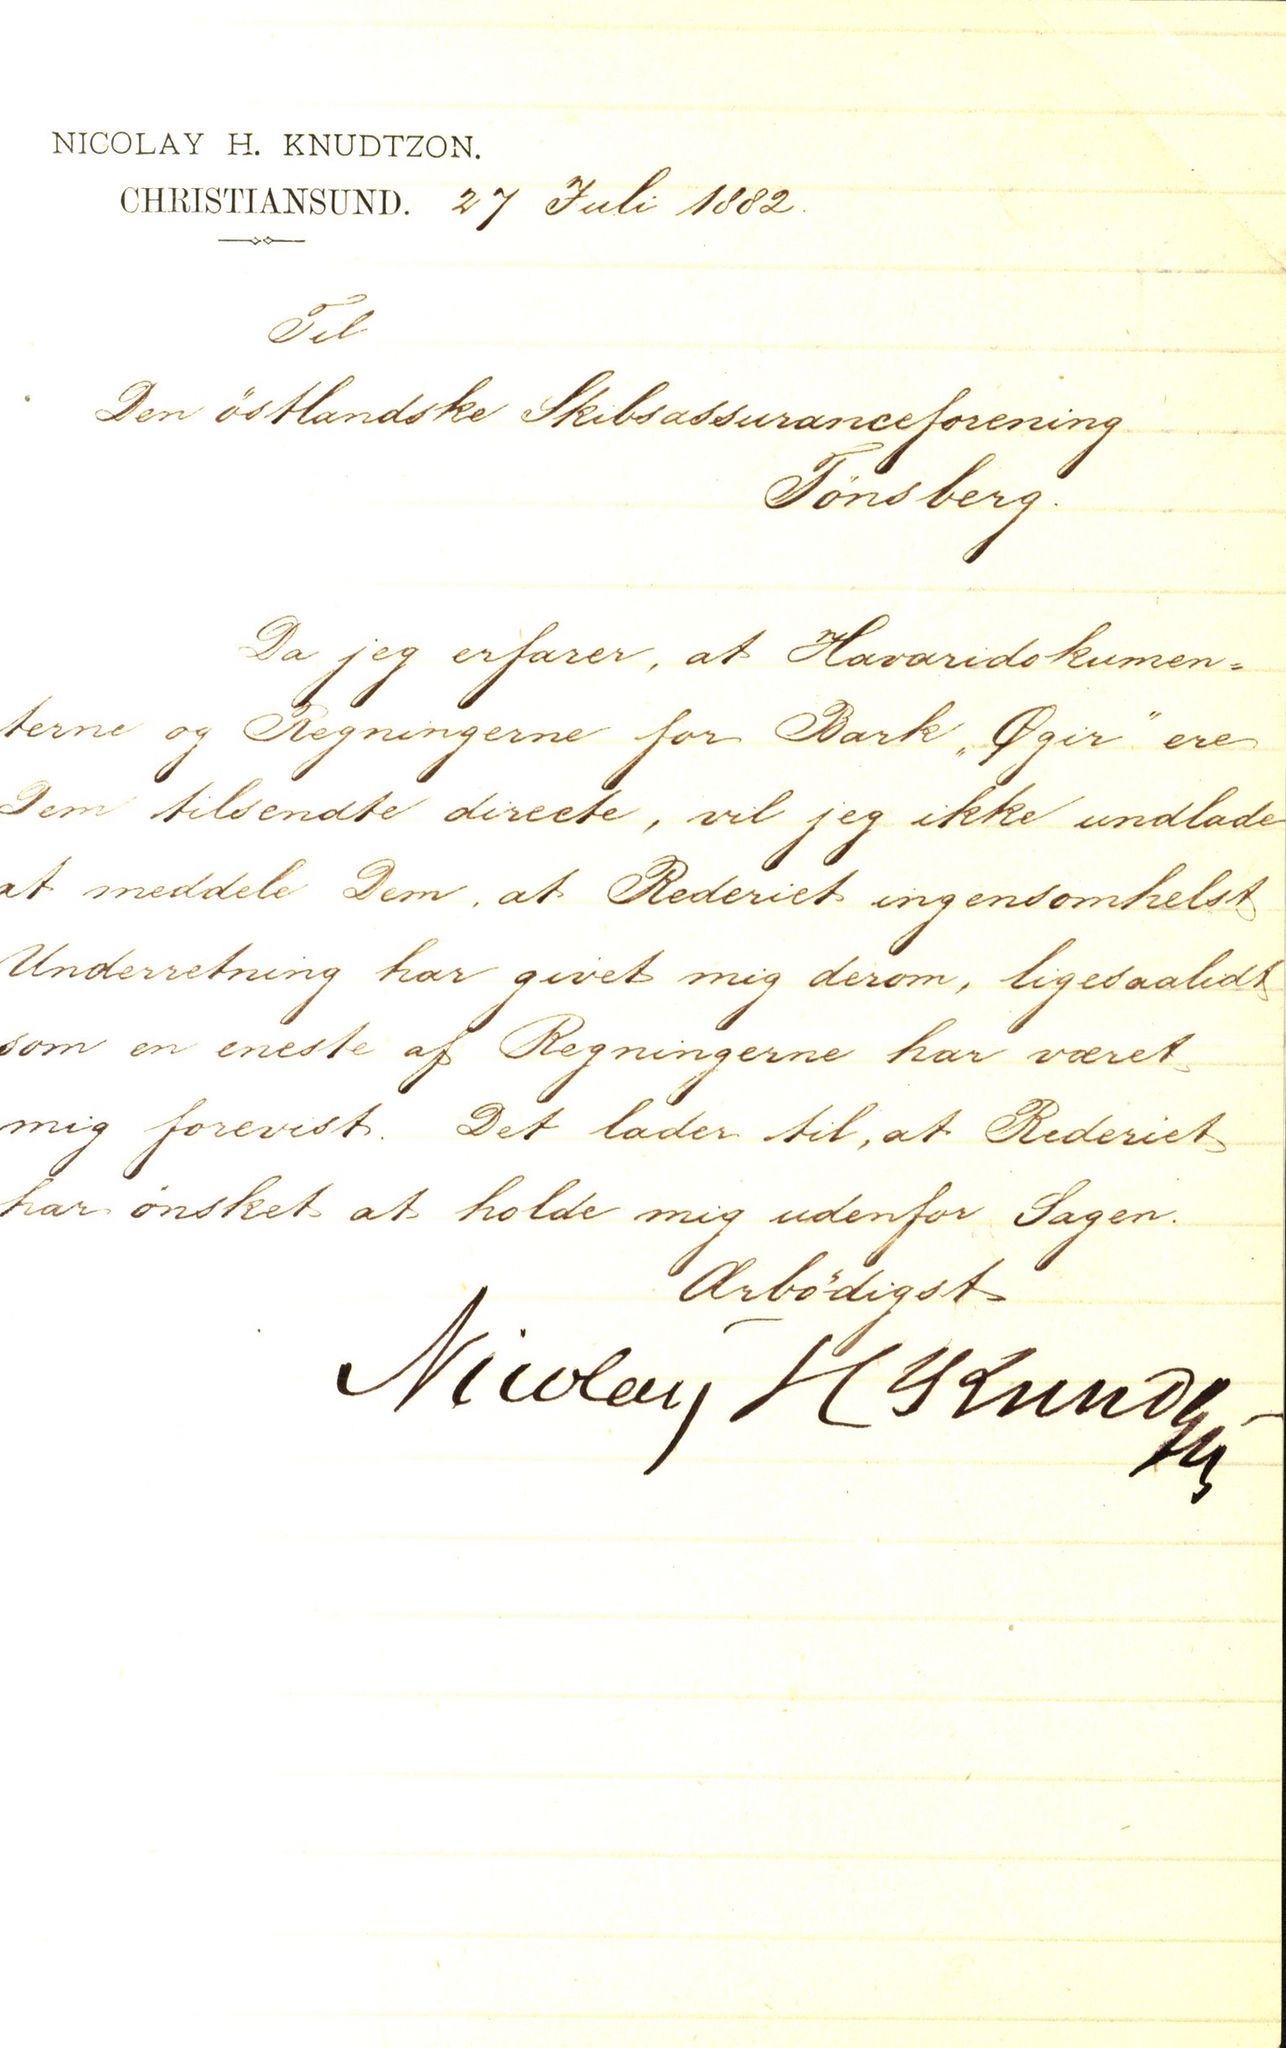 NICOLAY H. KNUDTZON.
CHRISTIANSUND. 27 Juli 1882.
Til
Den östlandske Skibsassuranceforening
Tönsberg.
Da jeg erfarer, at Havaridokumen-
terne og Regningerne for Bark „Øgir" ere
Dem tilsendte directe, vil jeg ikke undlade
at meddele Dem, at Rederiet ingensomhelst
Underretning har givet mig derom, ligesaalidt
som en eneste af Regningerne har været
mig forevist. Det lader til, at Rederiet
har önsket at holde mig udenfor Sagen.
Ærbödigst
Nicolay H Knudtzon